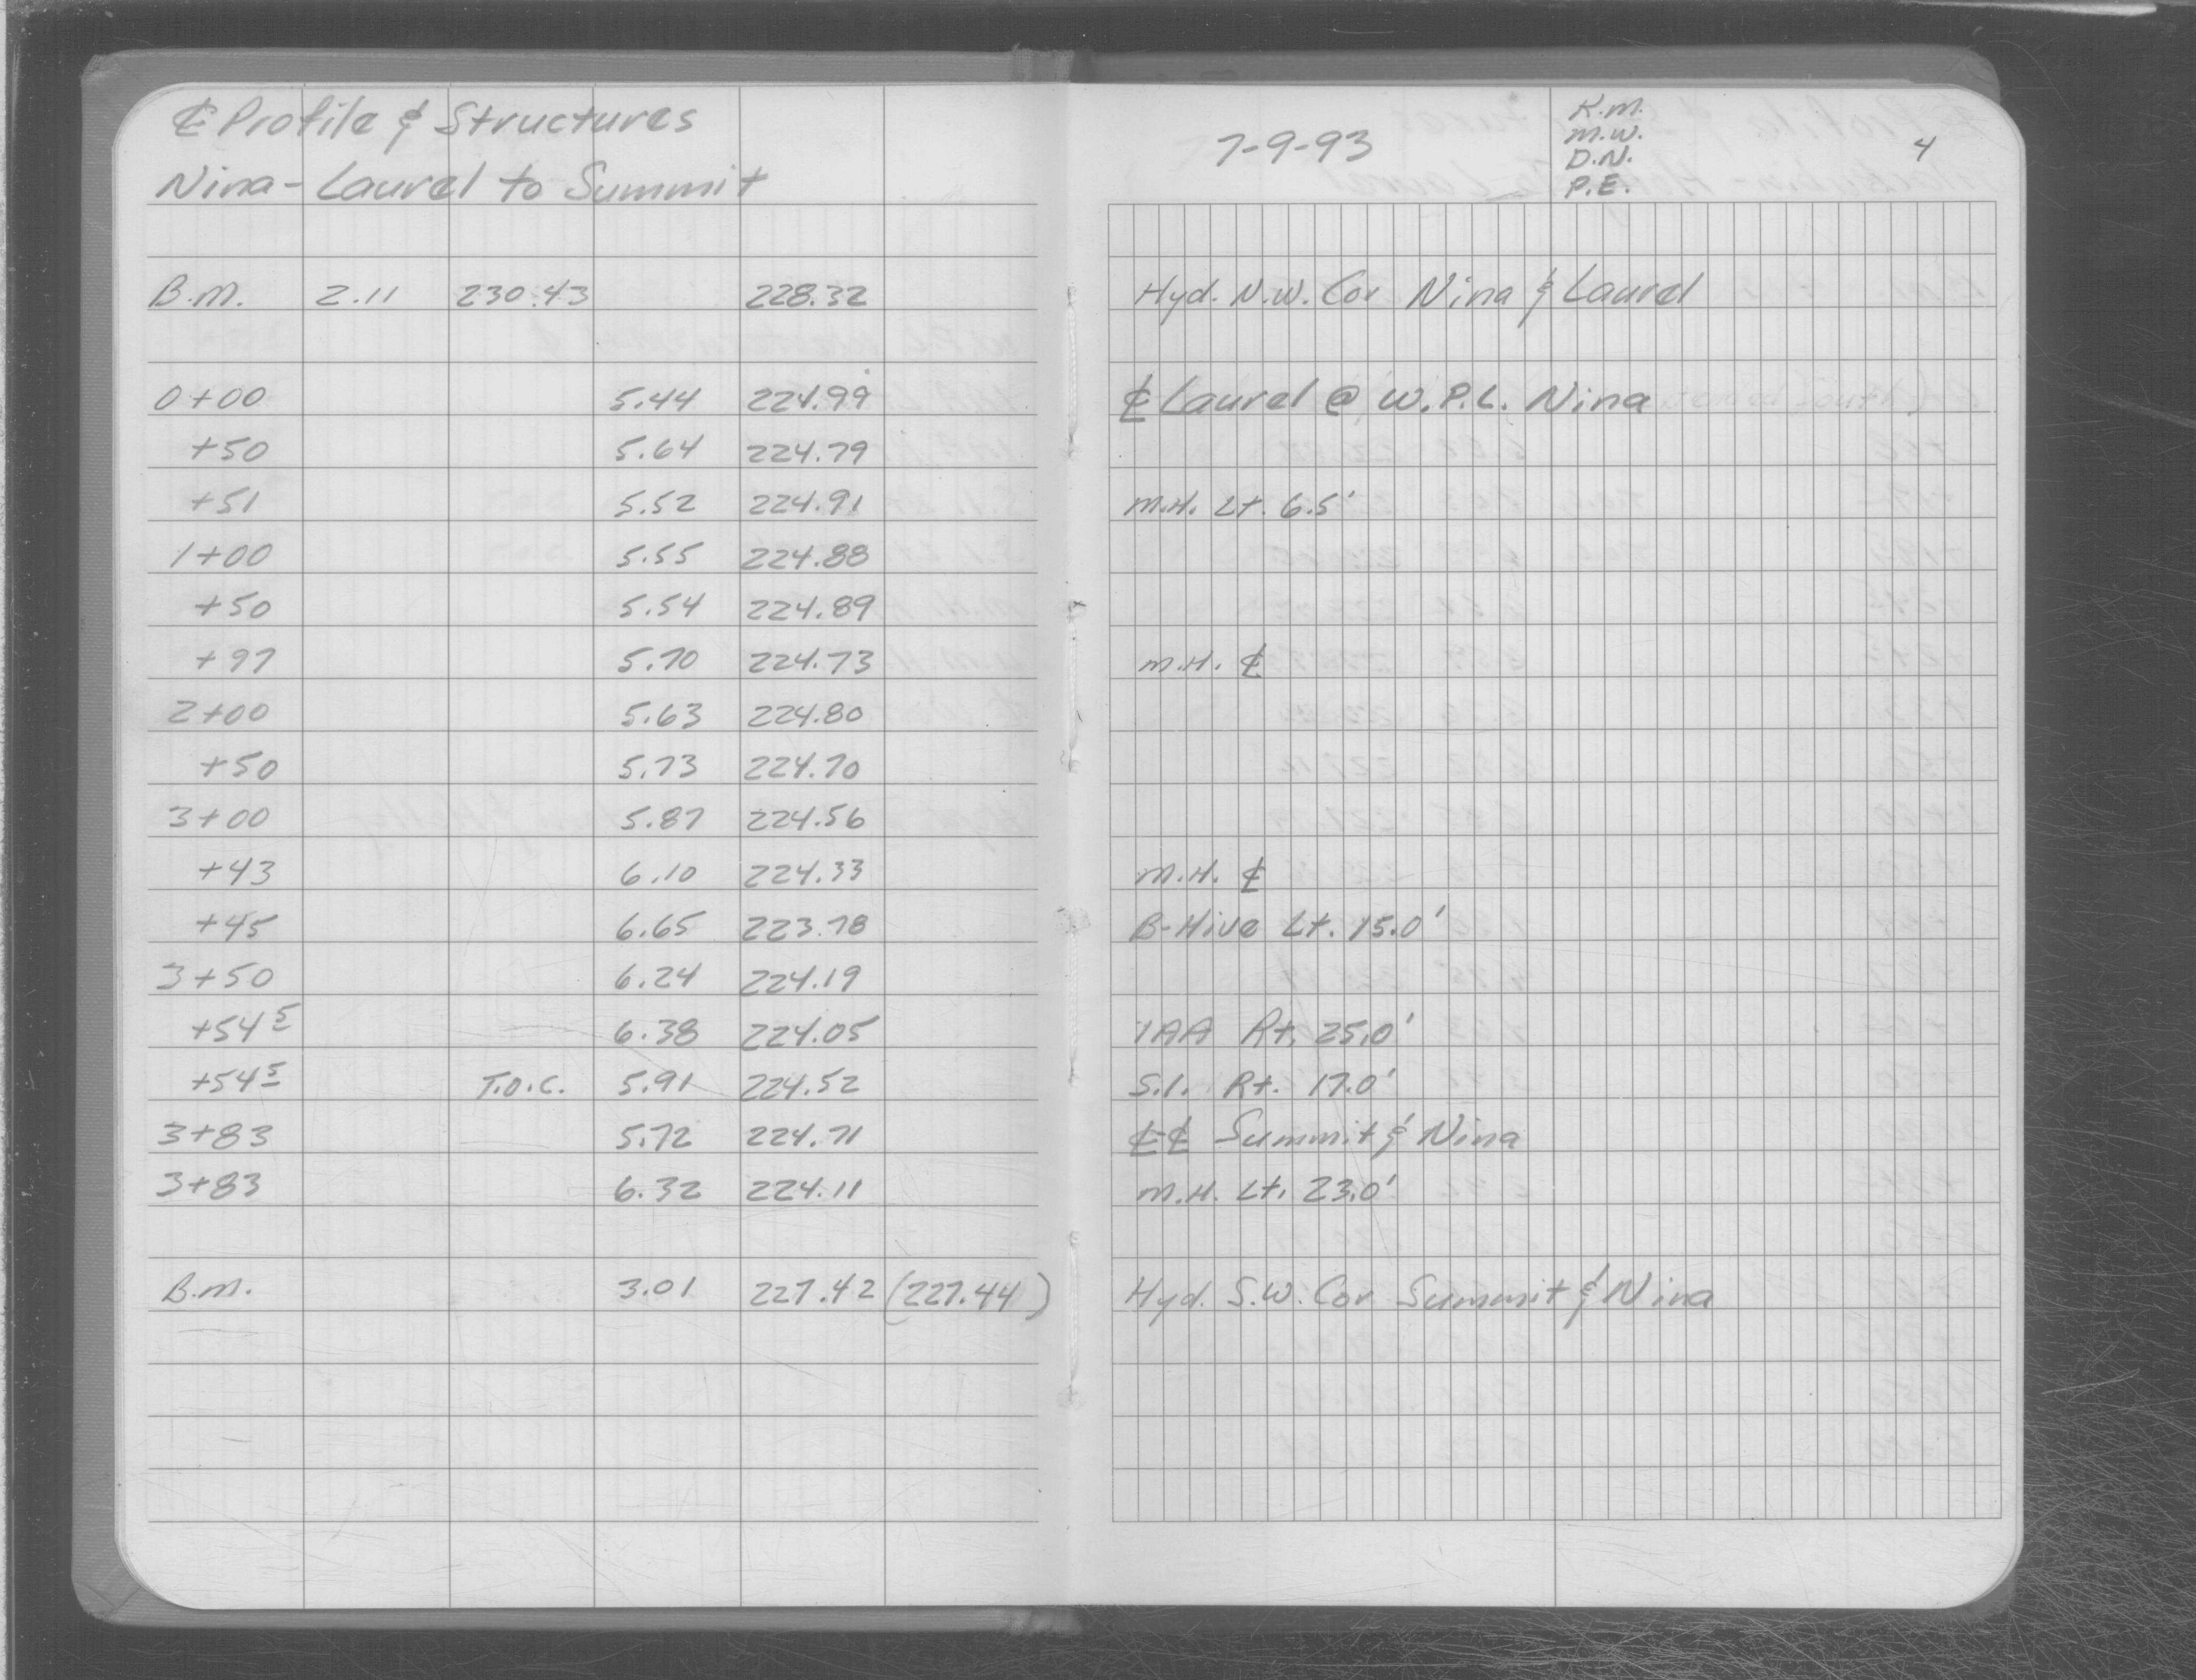 ℄ Profile & Structures
Nina - Laurel to Summit
7-9-93
K.M.
M.W.
D.N.
P.E.
4
B.M. 2.11 230.43 228.32 Hyd. N.W. Cor Nina & Laurel
0+00 5.44 224.99 ℄ Laurel @ W.P.L. Nina
+50 5.64 224.79
+51 5.52 224.91 M.H. Lt. 6.5'
1+00 5.55 224.88
+50 5.54 224.89
+97 5.70 224.73 M.H. ℄
2+00 5.63 224.80
+50 5.73 224.70
3+00 5.87 224.56
+43 6.10 224.33 M.H. ℄
+45 6.65 223.78 B-Hive Lt. 15.0'
3+50 6.24 224.19
+54 5 6.38 224.05 1AA Rt. 25.0'
+54 5 T.O.C. 5.91 224.52 S.I. Rt. 17.0'
3+83 5.72 224.71 ℄℄ Summit & Nina
3+83 6.32 224.11 M.H. Lt. 23.0'
B.M. 3.01 227.42 (227.44) Hyd. S.W. Cor Summit & Nina